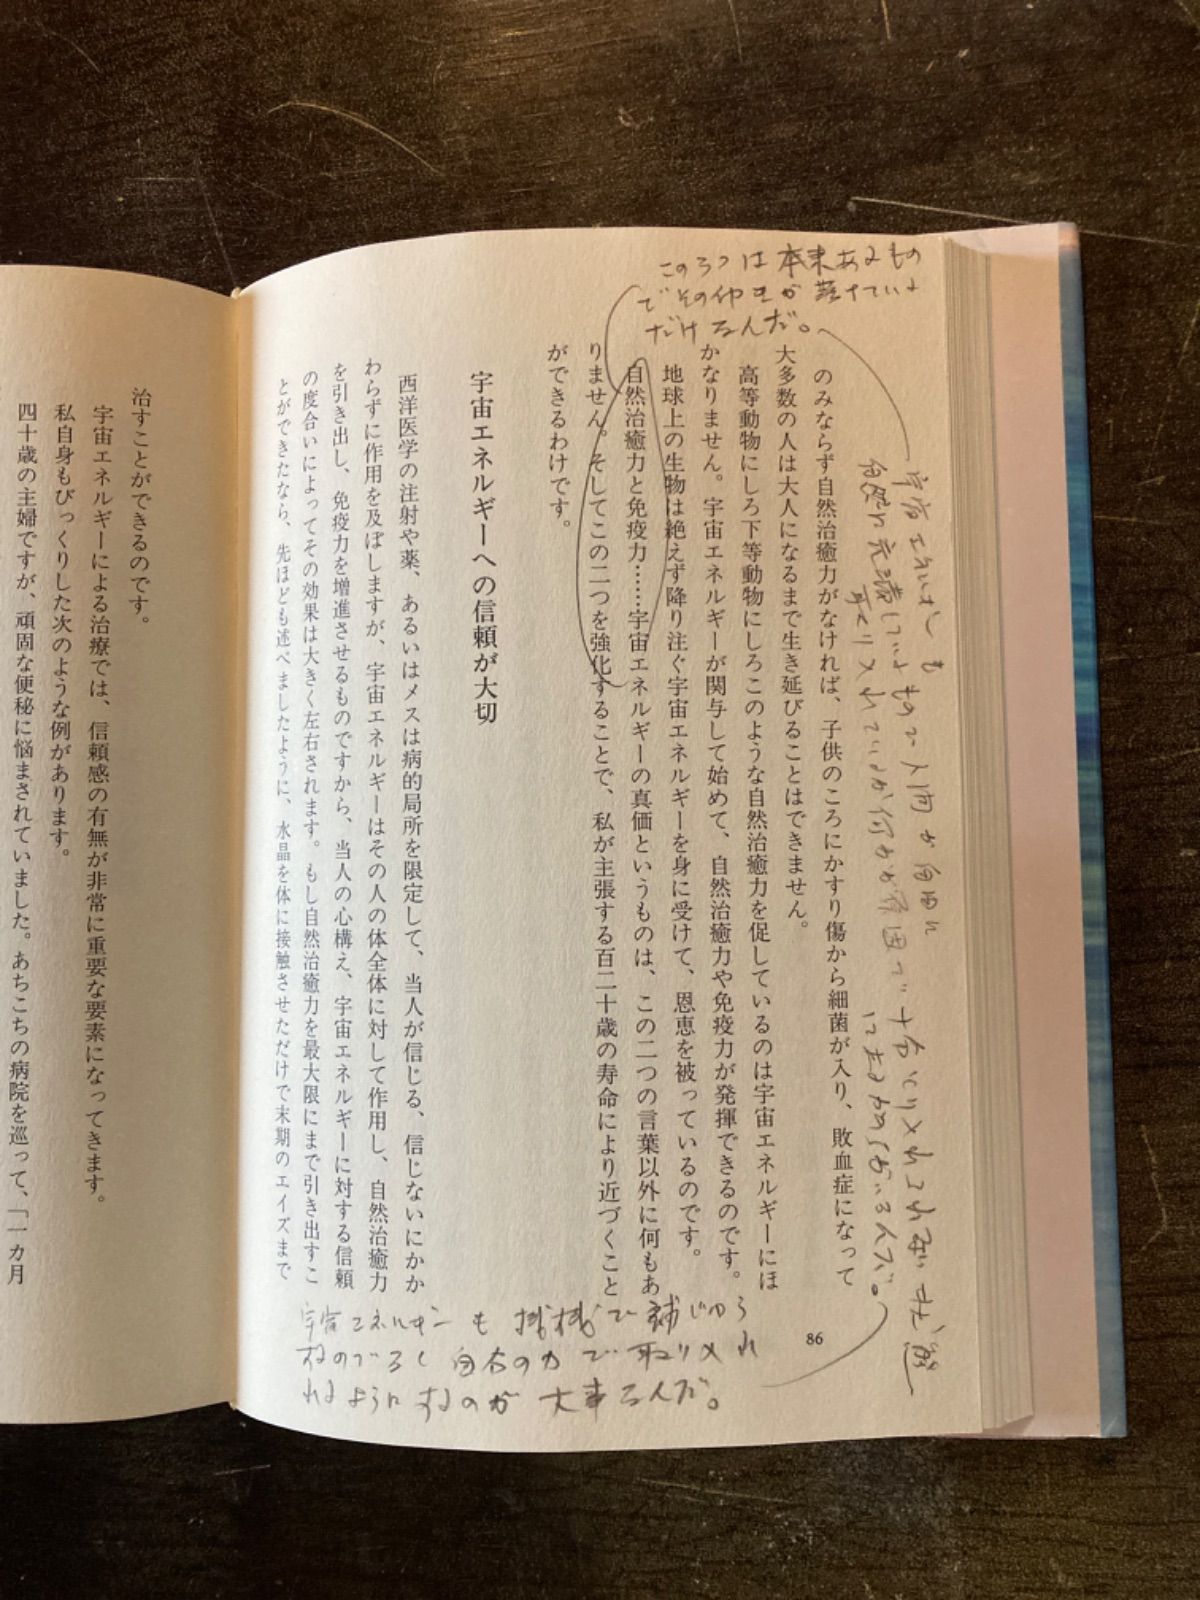 このろつは本来あるもの
でその仲まが落ちている
だけなんだ。
のみならず自然治癒力がなければ、子供のころにかすり傷から細菌が入り、敗血症になって
大多数の人は大人になるまで生き延びることはできません。
高等動物にしろ下等動物にしろこのような自然治癒力を促しているのは宇宙エネルギーにほ
かなりません。宇宙エネルギーが関与して始めて、自然治癒力や免疫力が発揮できるのです。
地球上の生物は絶えず降り注ぐ宇宙エネルギーを身に受けて、恩恵を被っているのです。
自然治癒力と免疫力……宇宙エネルギーの真価というものは、この二つの言葉以外に何もあ
りません。そしてこの二つを強化することで、私が主張する百二十歳の寿命により近づくこと
ができるわけです。
宇宙エネルギーへの信頼が大切
西洋医学の注射や薬、あるいはメスは病的局所を限定して、当人が信じる、信じないにかか
わらずに作用を及ぼしますが、宇宙エネルギーはその人の体全体に対して作用し、自然治癒力
を引き出し、免疫力を増進させるものですから、当人の心構え、宇宙エネルギーに対する信頼
の度合いによってその効果は大きく左右されます。もし自然治癒力を最大限にまで引き出すこ
とができたなら、先ほども述べましたように、水晶を体に接触させただけで末期のエイズまで
宇宙エネルギーも機械で補じゆう
するのでなく自分の力で取り入れ
れるようにするのが大事なんだ。
86
治すことができるのです。
宇宙エネルギーによる治療では、信頼感の有無が非常に重要な要素になってきます。
私自身もびっくりした次のような例があります。
四十歳の主婦ですが、頑固な便秘に悩まされていました。あちこちの病院を巡って、「一カ月